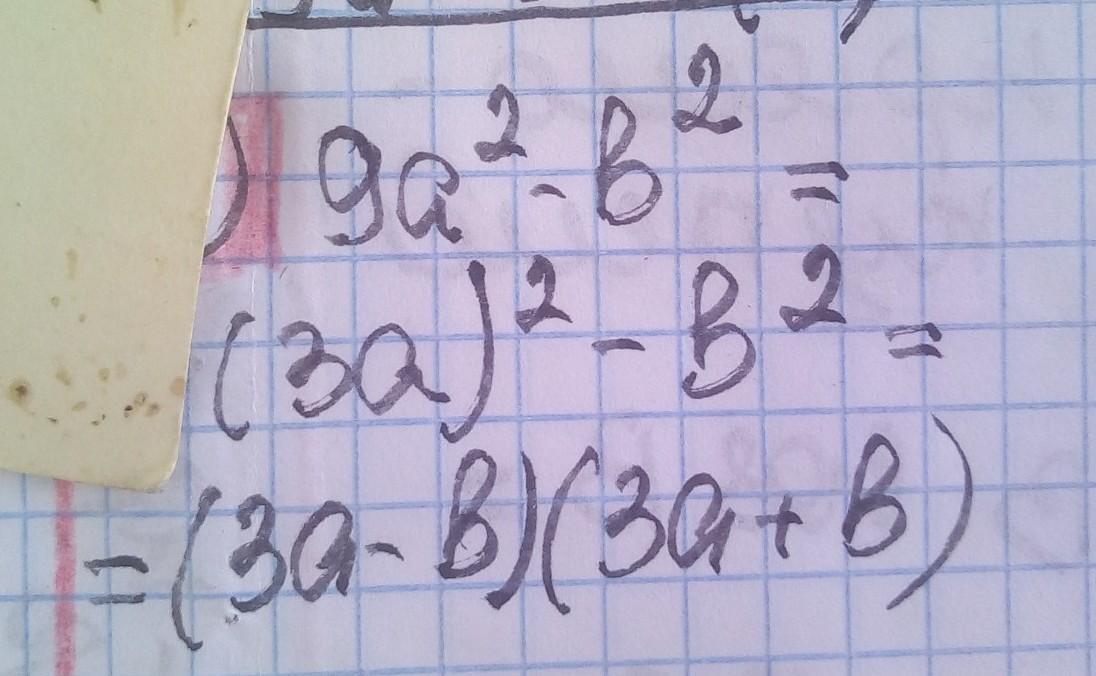 ) 9a² - b² =
(3a)² - b² =
= (3a - b)(3a + b)